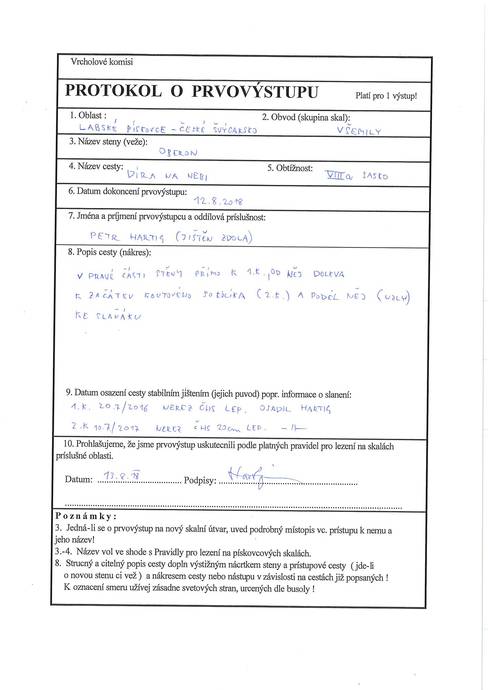 Vrcholové komisi
PROTOKOL O PRVOVÝSTUPU Platí pro 1 výstup!
1. Oblast : 2. Obvod (skupina skal):
LABSKÉ PÍSKOVCE - ČESKÉ ŠVÝCARSKO VŠEMILY
3. Název steny (veže):
OBERON
4. Název cesty: DÍRA NA NEBI 5. Obtížnost: VIIIa SASKO
6. Datum dokoncení prvovýstupu:
12.8.2018
7. Jména a príjmení prvovýstupcu a oddílová príslušnost:
PETR HARTIG (JIŠTĚN ZDOLA)
8. Popis cesty (nákres):
V PRAVÉ ČÁSTI STĚNY PŘÍMO K 1.K., OD NĚJ DOLEVA
K ZAČÁTKU KOUTOVÉHO SOKOLÍKA (2.K.) A PODÉL NĚJ (UZLY)
KE SLAŇÁKU
9. Datum osazení cesty stabilním jištením (jejich puvod) popr. informace o slanení:
1.K. 20.7/2016 NEREZ ČHS LEP. OSADIL HARTIG
2.K 10.7/2017 NEREZ ČHS 20cm LEP. -||-
10. Prohlašujeme, že jsme prvovýstup uskutecnili podle platných pravidel pro lezení na skalách
príslušné oblasti.
Datum: 13.8.18 Podpisy: Hartig
P o z n á m k y :
3. Jedná-li se o prvovýstup na nový skalní útvar, uved podrobný místopis vc. prístupu k nemu a
jeho název!
3.-4. Název vol ve shode s Pravidly pro lezení na pískovcových skalách.
8. Strucný a citelný popis cesty dopln výstižným nácrtkem steny a prístupové cesty ( jde-li
o novou stenu ci vež ) a nákresem cesty nebo nástupu v závislosti na cestách již popsaných !
K oznacení smeru užívej zásadne svetových stran, urcených dle busoly !